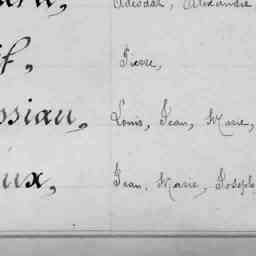 Adéodat, Alexandre
f, Pierre,
ssiau, Louis, Jean, Marie,
ux, Jean, Marie, Joseph,